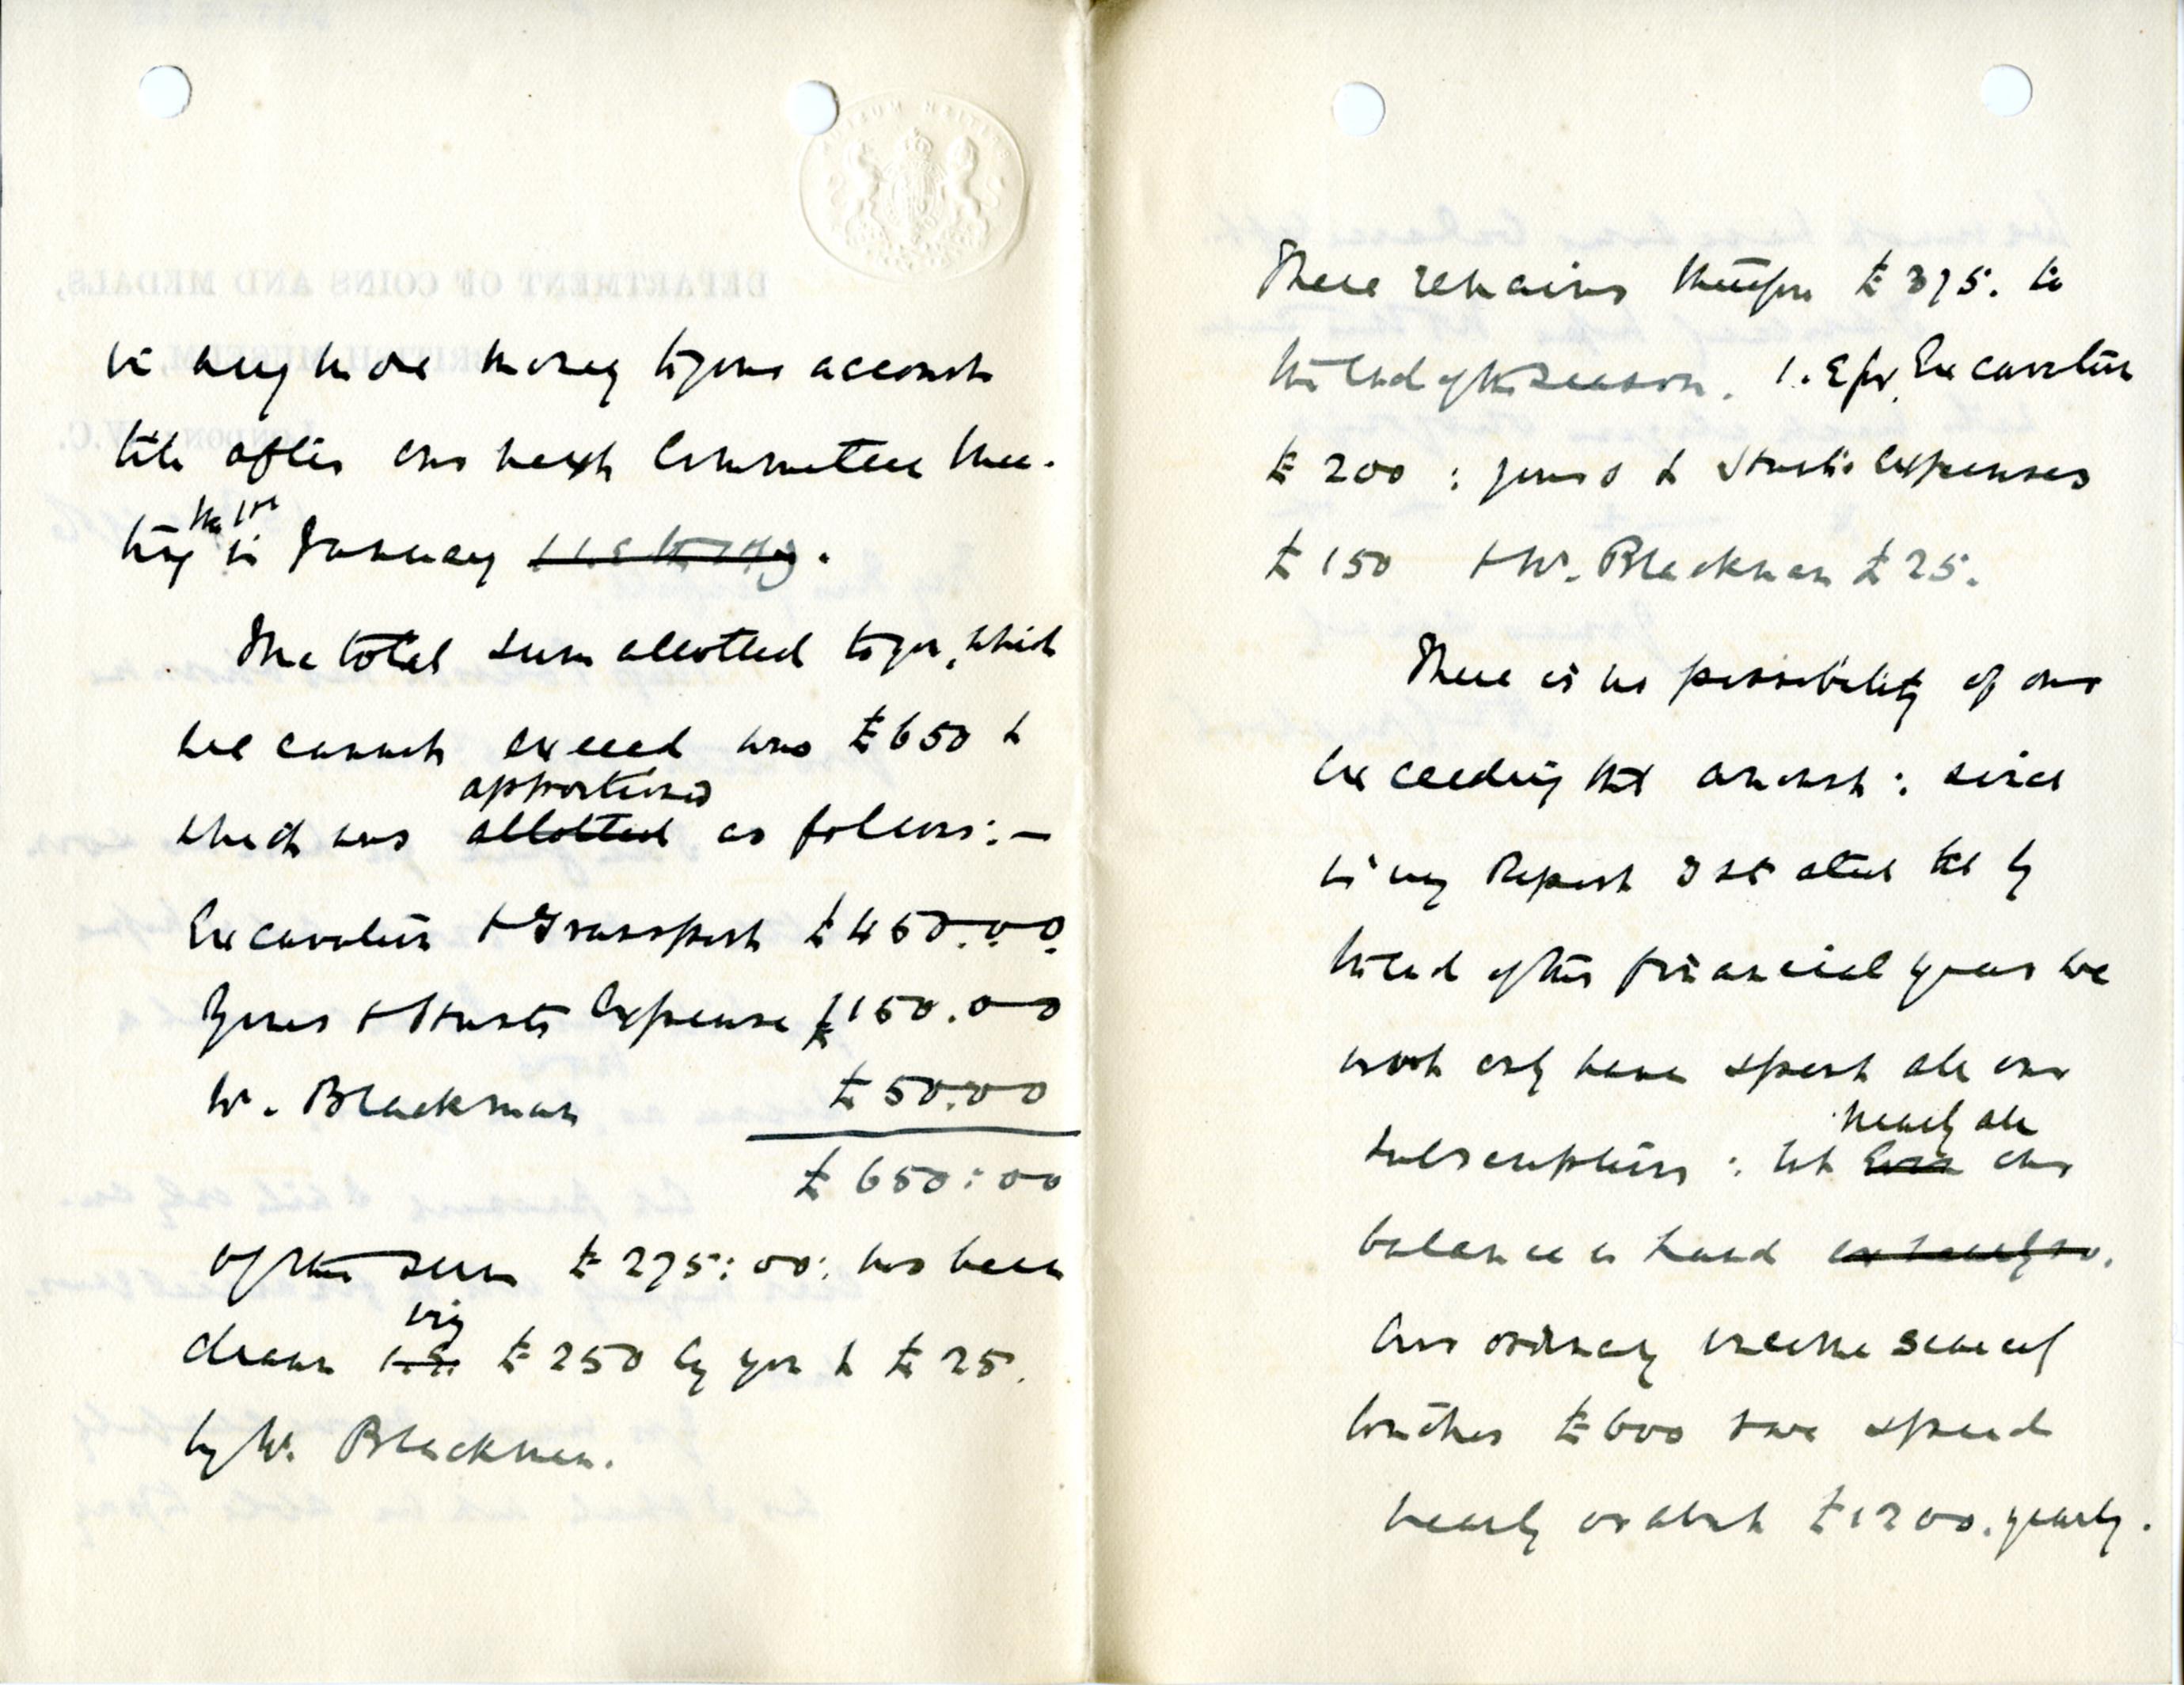 in any more money to your account
till after our next Committee Mee-
ting the 1st in January
The total sum allotted to you, which
we cannot exceed was £650 &
which was allotted apportioned as follows:—
Excavation & Transport £450.00
Yours & Hursts Expense £150.00
W. Blackman £50.00
£650:00
Of this sum £275:00: has been
drawn i.e. viz £250 by you & £25.
by W. Blackman.
There remains therefore £375. to
the end of the season. i.e for Excavation
£200 : yours & Hursts Expenses
£150 & W. Blackman £25.
There is no possibility of our
exceeding that amount : since
in my Report I stated that by
the end of this financial year we
not only have spent all our
subscriptions : but even nearly all our
balance in hand
Our ordinary income scarcely
touches £600 & we spend
nearly or about £1200. yearly.
DEPARTMENT OF COINS AND MEDALS,
BRITISH MUSEUM,
LONDON, W.C.